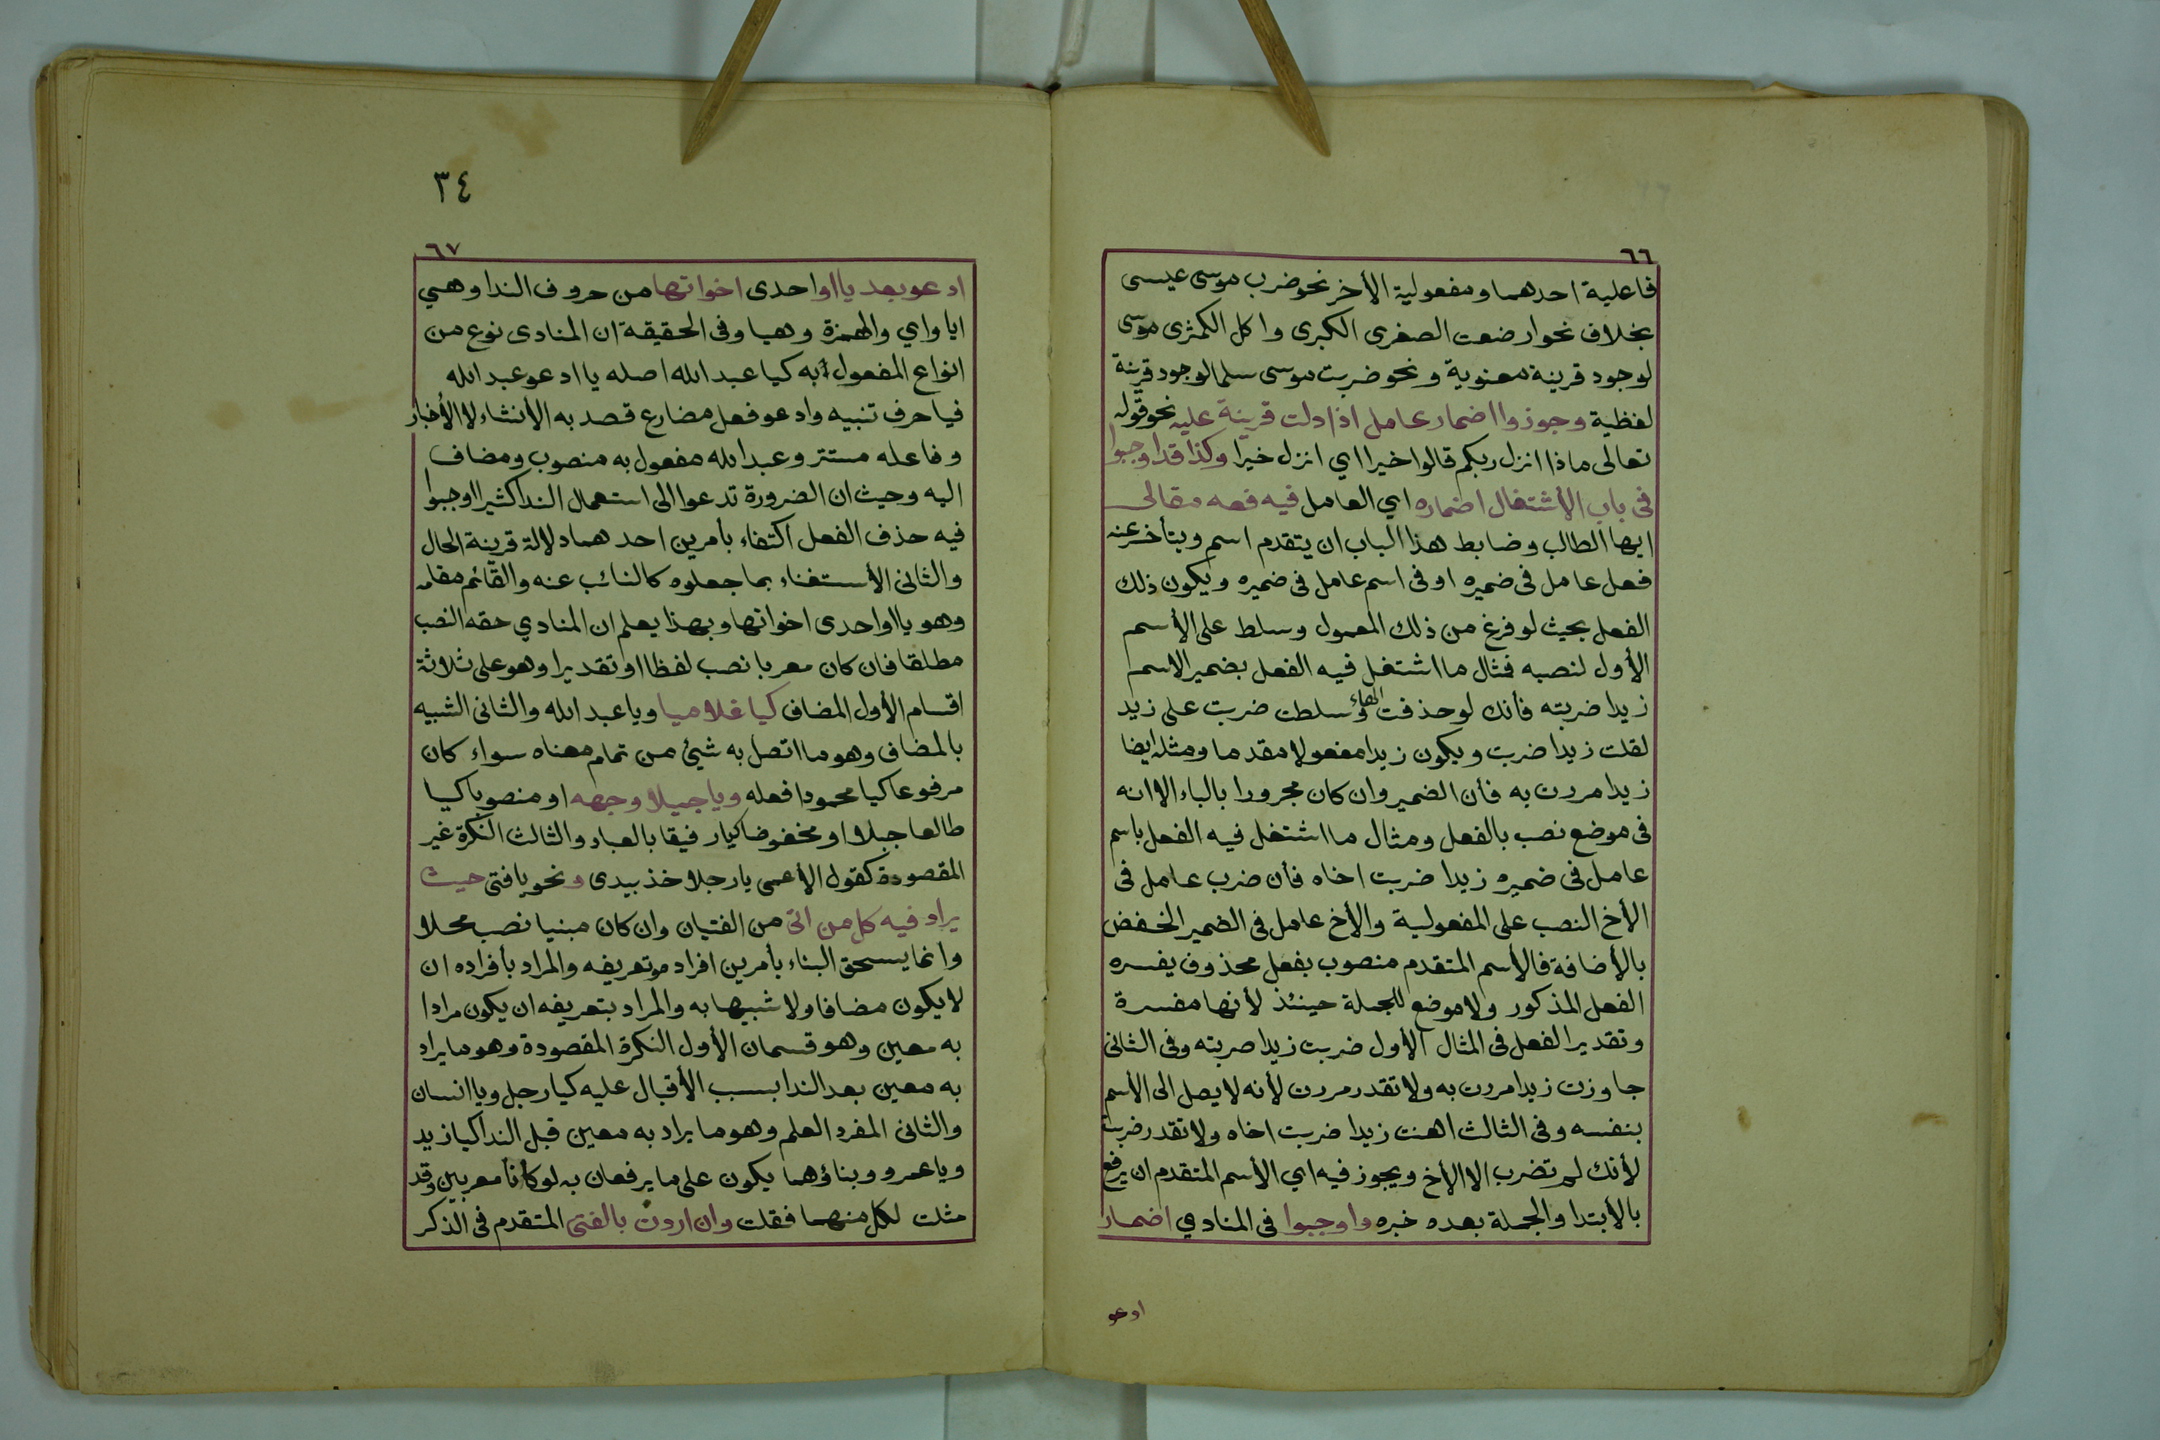 ٦٦
فاعلية احدهما ومفعولية الأخر نحو ضرب موسى عيسى
بخلاف نحو ارضعت الصغرى الكبرى واكل الكمثرى موسى
لوجود قرينة معنوية ونحو ضربت موسى سلما لوجود قرينة
لفظية وجوزوا اضمار عامل اذا دلت قرينة عليه نحو قوله
تعالى ماذا انزل ربكم قالوا خيرا اي انزل خيرا وكذا قد اوجبوا
فى باب الأشتغال اضماره اي العامل فيه فعه مقالى
ايها الطالب وضابط هذا الباب ان يتقدم اسم ويتأخر عنه
فعل عامل فى ضميره او فى اسم عامل فى ضميره ويكون ذلك
الفعل بحيث لو فرغ من ذلك المعمول وسلط على الأسم
الأول لنصبه فمثال ما اشتغل فيه الفعل بضمير الاسم
زيدا ضربته فأنك لو حذفت الهاء وسلطت ضربت على زيد
لقلت زيدا ضربت ويكون زيدا مفعولا مقدما ومثله ايضا
زيدا مررت به فأن الضمير وان كان مجرورا بالباء الا انه
فى موضع نصب بالفعل ومثال ما اشتغل فيه الفعل باسم
عامل فى ضميره زيدا ضربت اخاه فأن ضرب عامل فى
الأخ النصب على المفعولية والأخ عامل فى الضمير الخفض
بالأضافة فالأسم المتقدم منصوب بفعل محذوف يفسره
الفعل المذكور ولا موضع للجملة حينئذ لأنها مفسرة
وتقدير الفعل فى المثال الأول ضربت زيدا ضربته وفى الثانى
جاوزت زيدا مررت به ولا تقدر مررت لأنه لا يصل الى الأسم
بنفسه وفى الثالث اهنت زيدا ضربت اخاه ولا تقدر ضربت
لأنك لم تضرب الا الأخ ويجوز فيه اي الأسم المتقدم ان يرفع
بالأبتدا والجملة بعده خبره واوجبوا فى المنادي اضمار
ادعو
٣٤
٦٧
ادعو بعد يا او احدى اخواتها من حروف الندا وهي
ايا واي والهمزة وهيا وفى الحقيقة ان المنادى نوع من
انواع المفعول به كيا عبد الله اصله يا ادعو عبد الله
فيا حرف تنبيه وادعو فعل مضارع قصد به الأنشاء لا الأخبار
وفاعله مستتر وعبد الله مفعول به منصوب ومضاف
اليه وحيث ان الضرورة تدعوا الى استعمال الندا كثيرا اوجبوا
فيه حذف الفعل اكتفاء بأمرين احدهما دلالة قرينة الحال
والثانى الأستغناء بما جعلوه كالنائب عنه والقائم مقامه
وهو يا او احدى اخواتها وبهذا يعلم ان المنادي حقه النصب
مطلقا فان كان معربا نصب لفظا او تقديرا وهو على ثلاثة
اقسام الأول المضاف كيا غلاميا ويا عبد الله والثانى الشبيه
بالمضاف وهو ما اتصل به شيئ من تمام معناه سواء كان
مرفوعا كيا محمودا فعله ويا جميلا وجهه او منصوبا كيا
طالعا جبلا او مخفوضا كيا رفيقا بالعباد والثالث النكرة غير
المقصودة كقول الأعمى يا رجلا خذ بيدى ونحو يا فتى حيث
يراد فيه كل من اتى من الفتيان وان كان مبنيا نصب محلا
وانما يستحق البناء بأمرين افراده وتعريفه والمراد بأفراده ان
لا يكون مضافا ولا شبيها به والمراد بتعريفه ان يكون مرادا
به معين وهو قسمان الأول النكرة المقصودة وهو ما يراد
به معين بعد الندا بسبب الأقبال عليه كيا رجل ويا انسان
والثانى المفرد العلم وهو ما يراد به معين قبل الندا كيا زيد
ويا عمرو وبناؤهما يكون على ما يرفعان به لو كانا معربين وقد
مثلت لكل منهما فقلت وان اردت بالفتى المتقدم فى الذكر